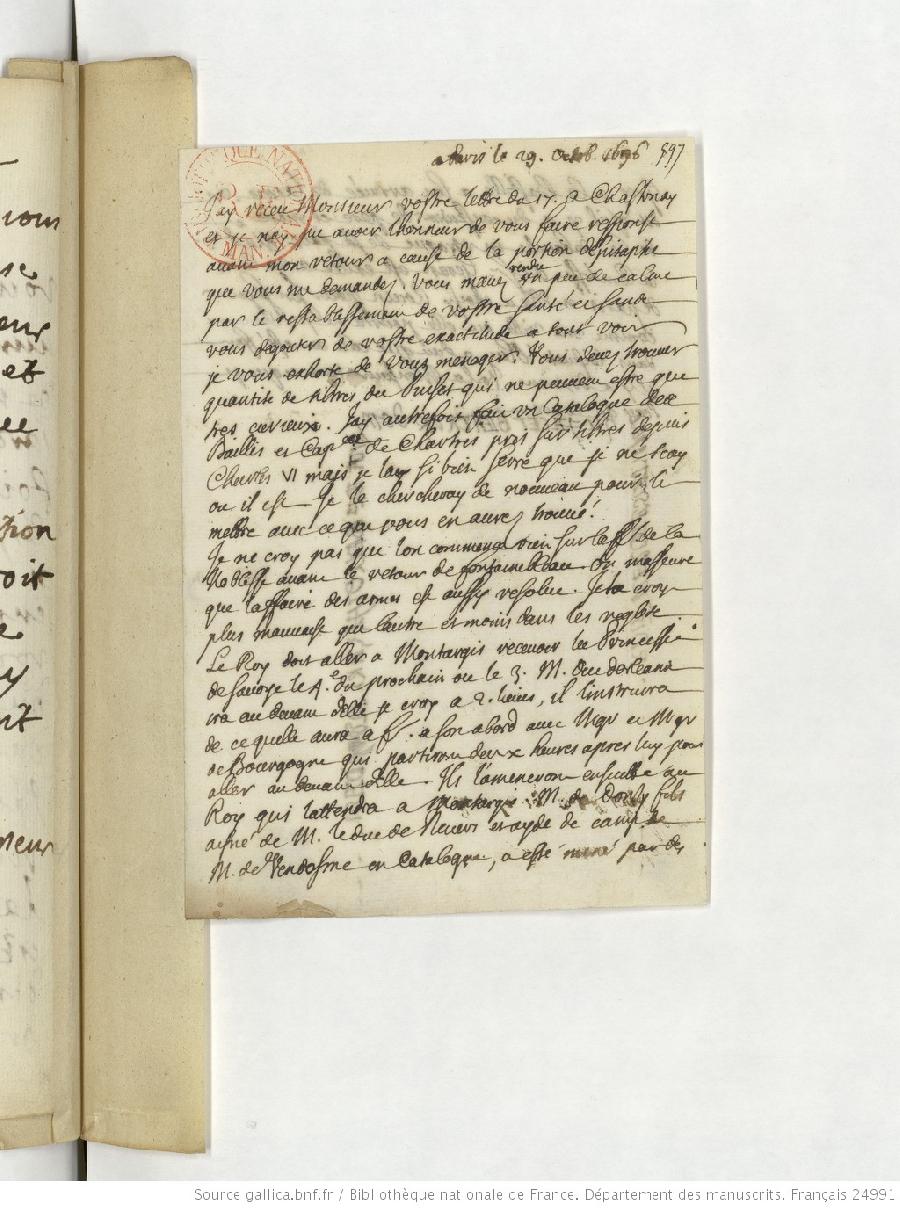 a Paris le 29. octob. 1696 597
J'ay receu Monsieur vostre lettre du 17. a Chastenay
et je n'ay pu avoir l'honneur de vous faire response
avant mon retour a cause de la portion d'epitaphe
que vous me demandez. Vous m'avez rendu un peu de calme
par le restablissement de vostre santé et sans
vous degouter de vostre exactitude a tout voir
je vous exhorte de vous menager. Vous devez trouver
quantité de titres du qui ne peuvent estre que
tres curieux. J'ay autrefois fait un Catalogue des
Baillis et Cap.nes de Chartres pris sur titres depuis
Charles VI mais je l'ay si bien serré que je ne scay
ou il est. Je le chercheray de nouveau pour le
mettre avec ce que vous en aurez trouvé.
Je ne croy pas que l'on commence rien sur l'aff.re de la
Noblesse avant le retour de fontainebleau. On m'asseure
que l'affaire des armes est aussy resolue. Je la croy
plus mauvaise que l'autre et moins dans les regles.
Le Roy doit aller a Montargis recevoir la Princesse
de Savoye le 4.e du prochain ou le 3. M. Duc d'orleans
ira au devant d'elle je croy a 2. lieues, il l'instruira
de ce qu'elle aura a fr. a son abord avec Mgr et Mgr
de Bourgogne qui partiront deux heures apres luy pour
aller au devant d'elle. Ils l'ameneront ensuitte au
Roy qui l'attendra a Montargis. M. de Donzy fils
aisné de M. le duc de Nevers et ayde de camp de
M. de Vendosme en Catalogne, a esté par des
Source gallica.bnf.fr / Bibliothèque nationale de France. Département des manuscrits. Français 24991